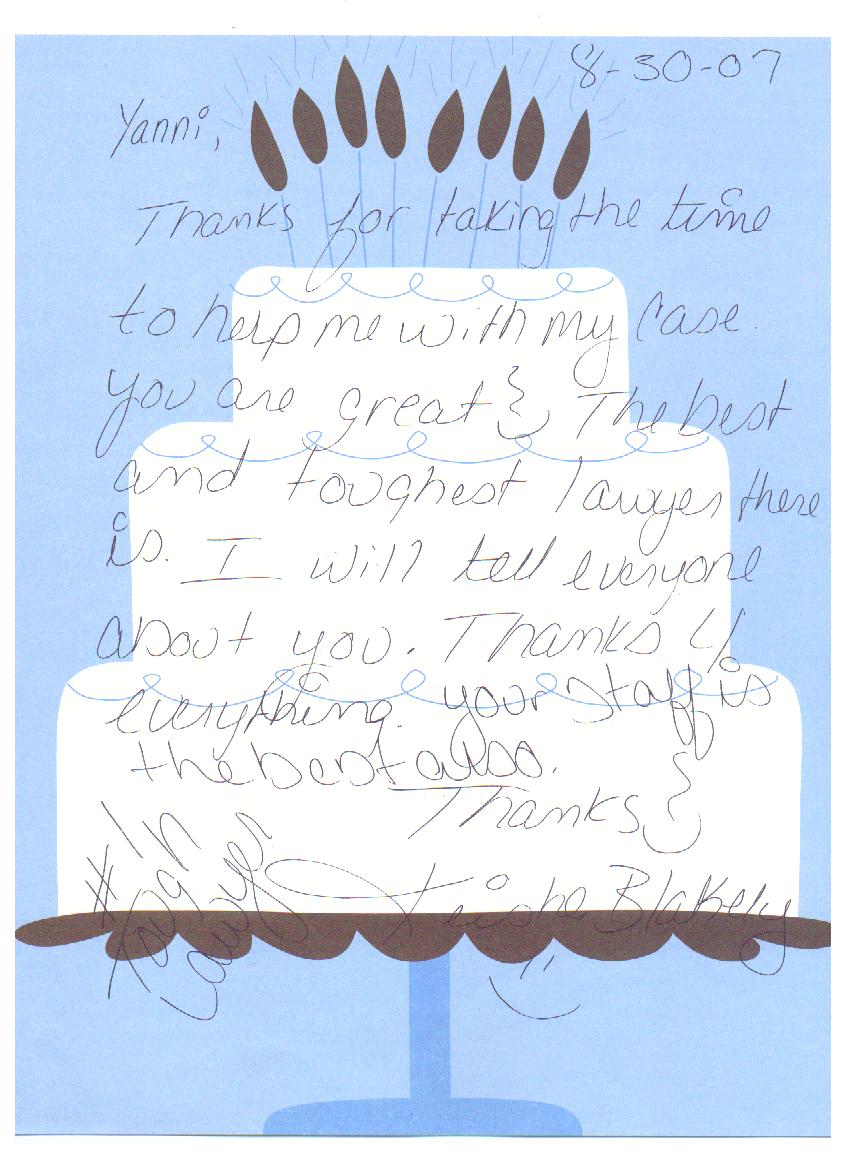 8-30-07
Yanni,
Thanks for taking the time
to help me with my case.
you are great! The best
and toughest lawyer there
is. I will tell everyone
about you. Thanks 4
everything. your staff is
the best also.
Thanks!
Keisha Blakely
#1 in
Tough
Lawyer